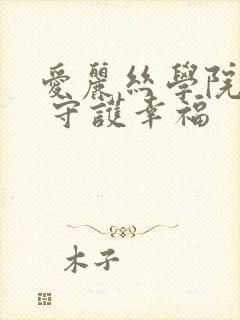 愛麗絲學院
守護幸福
木子